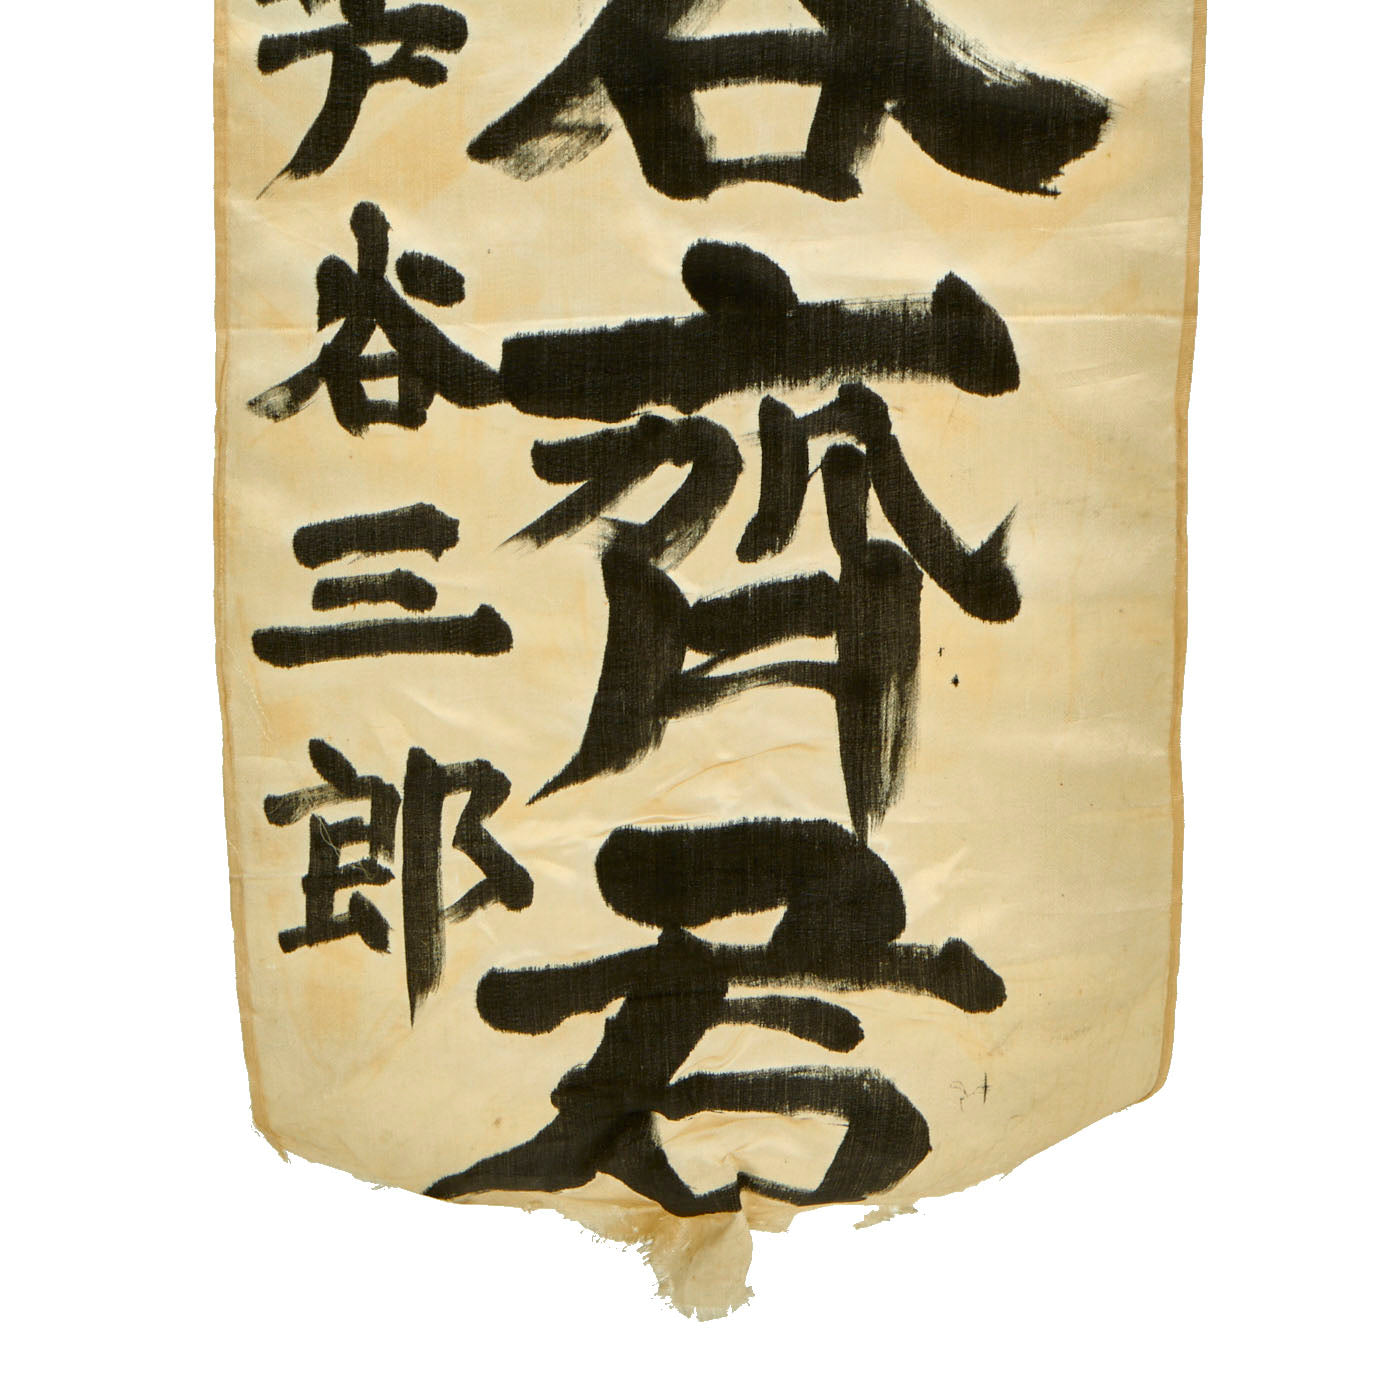 谷齊君
谷三郎